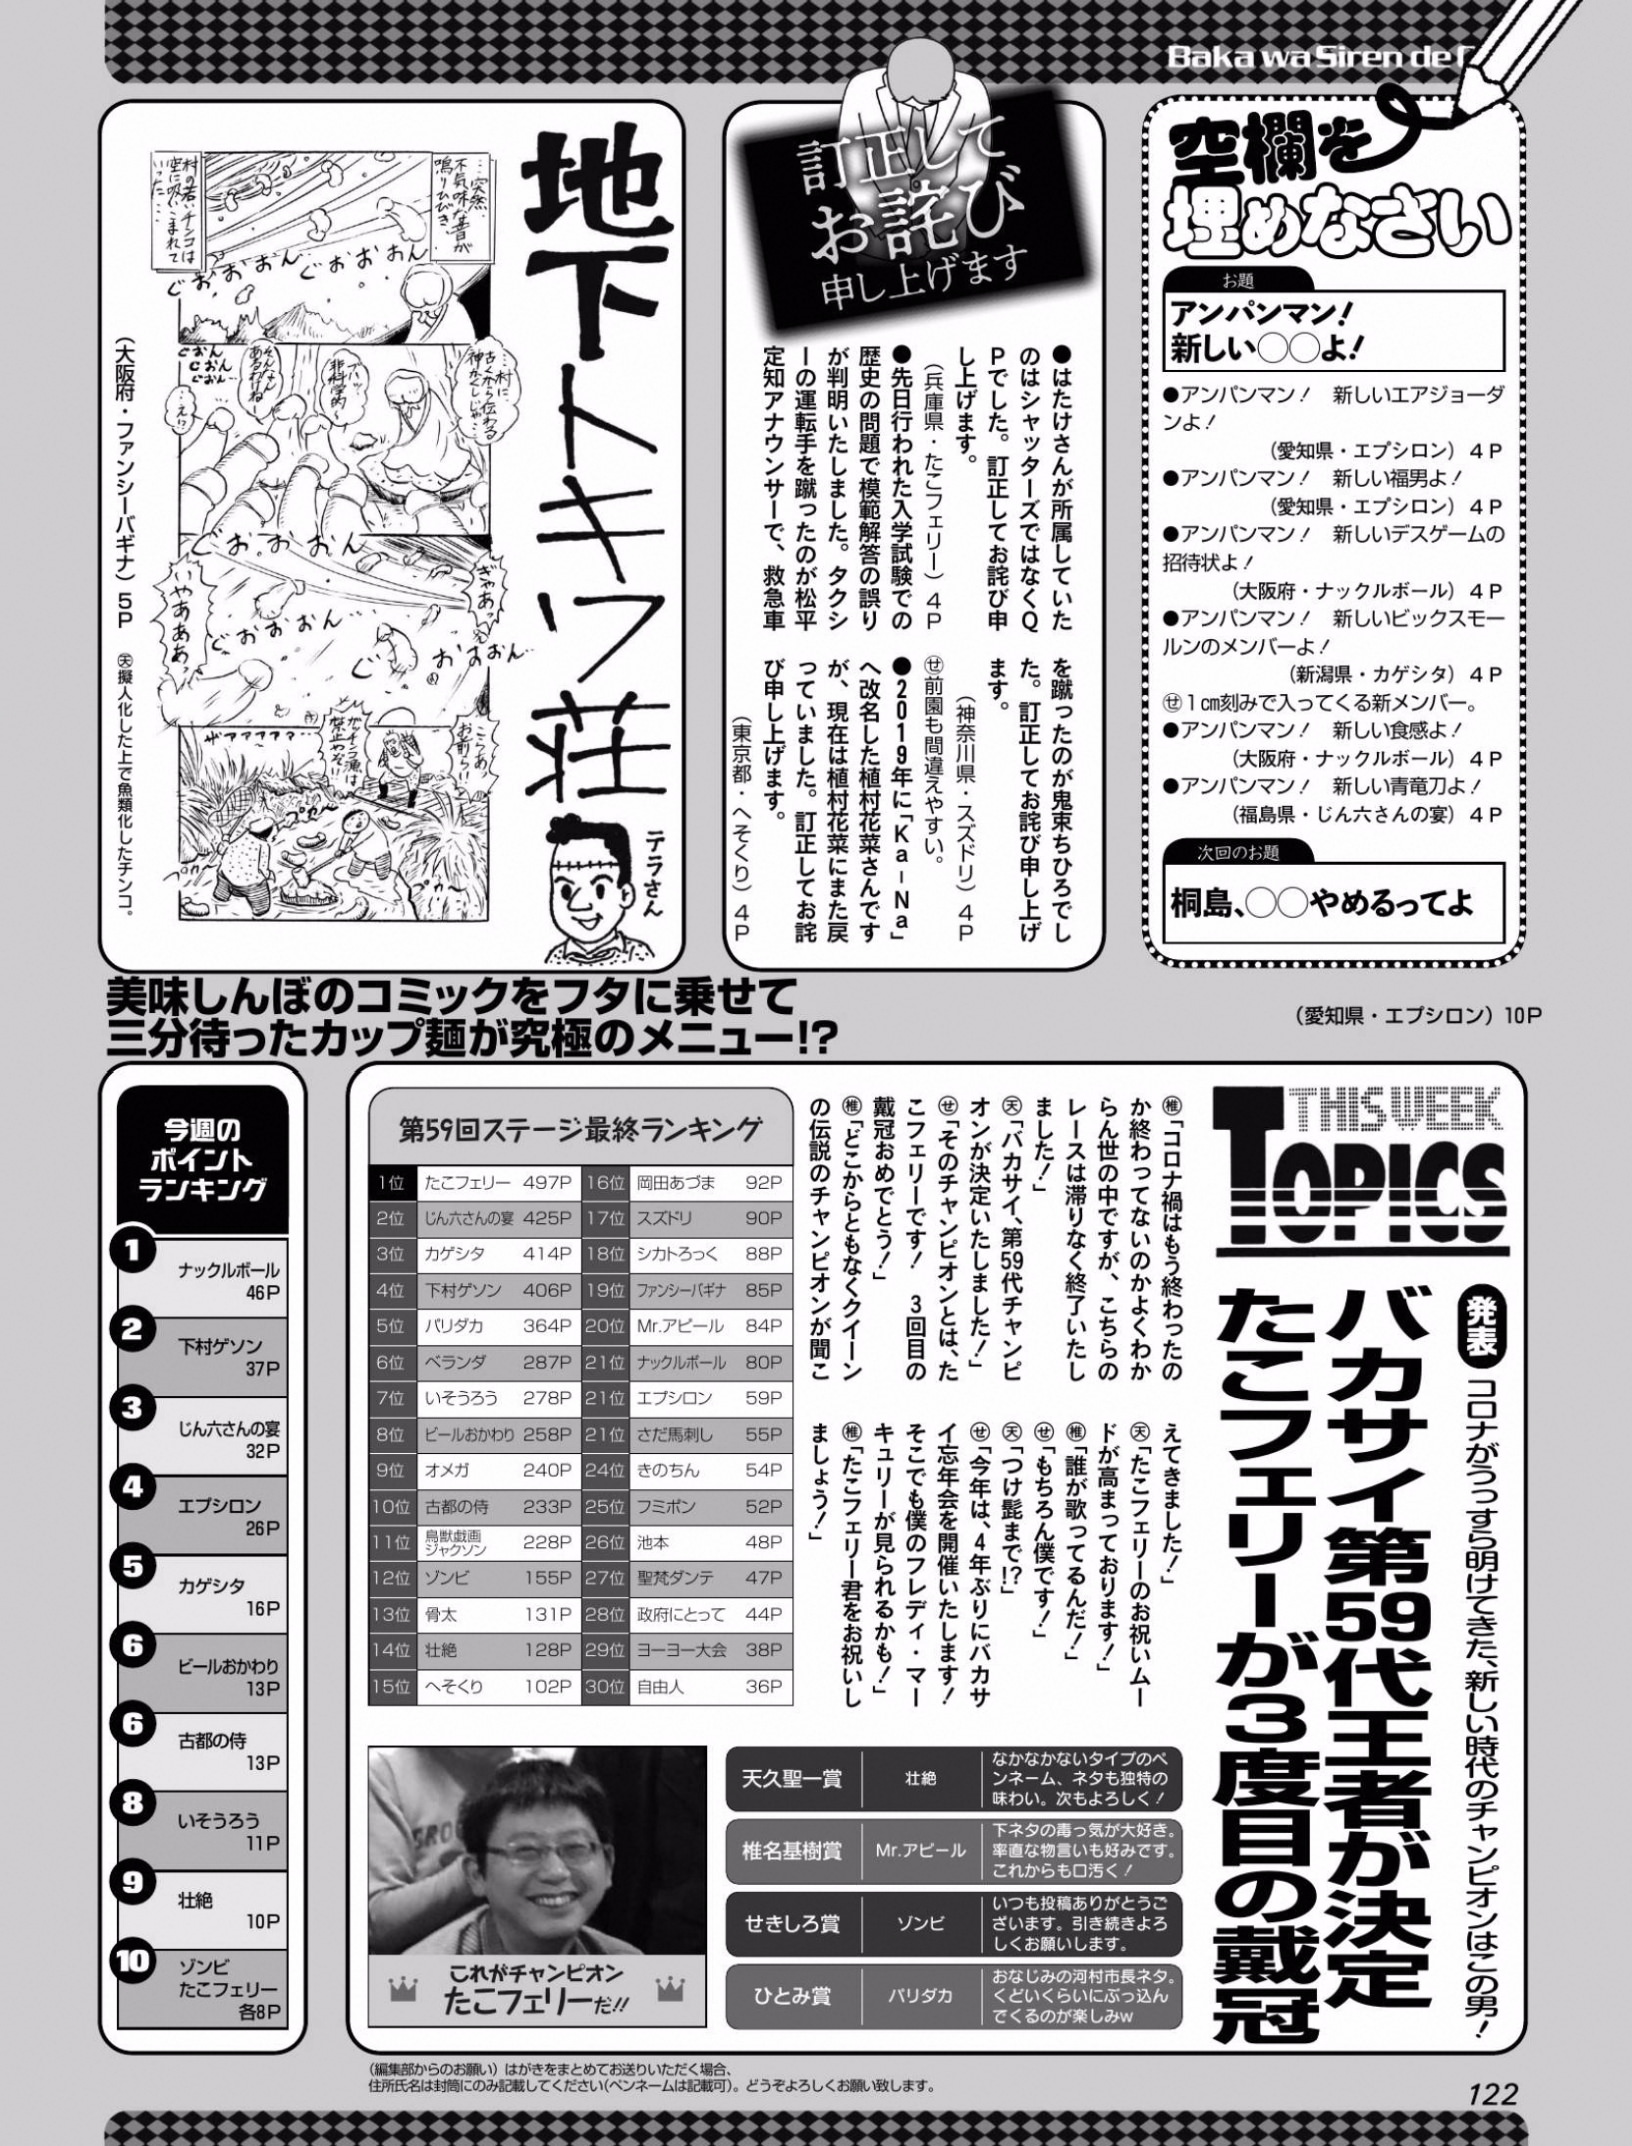 Baka wa Siren de
空欄を
埋めなさい
お題
アンパンマン!
新しい〇〇よ!
●アンパンマン! 新しいエアジョーダ
ンよ!
(愛知県・エプシロン) 4P
●アンパンマン! 新しい福男よ!
(愛知県・エプシロン) 4P
●アンパンマン! 新しいデスゲームの
招待状よ!
(大阪府・ナックルボール) 4P
●アンパンマン! 新しいビックスモー
ルンのメンバーよ!
(新潟県・カゲシタ) 4P
㋝1㎝刻みで入ってくる新メンバー。
●アンパンマン! 新しい食感よ!
(大阪府・ナックルボール) 4P
●アンパンマン! 新しい青竜刀よ!
(福島県・じん六さんの宴) 4P
次回のお題
桐島、〇〇やめるってよ
訂正して
お詫び
申し上げます
●はたけさんが所属していた
のはシャッターズではなくQ
Pでした。訂正してお詫び申
し上げます。
(兵庫県・たこフェリー) 4P
●先日行われた入学試験での
歴史の問題で模範解答の誤り
が判明いたしました。タクシ
ーの運転手を蹴ったのが松平
定知アナウンサーで、救急車
を蹴ったのが鬼束ちひろでし
た。訂正してお詫び申し上げ
ます。
(神奈川県・スズドリ) 4P
㋝前園も間違えやすい。
●2019年に「Ka-Na」
へ改名した植村花菜さんです
が、現在は植村花菜にまた戻
っていました。訂正してお詫
び申し上げます。
(東京都・へそくり) 4P
地下トキワ荘
テラさん
…突然
不気味な音が
鳴りひびき、
村の若いチンコは
空に吸いこまれて
いった…
ぐおおおん
ぐおおおん
…村に
古くから伝わる
神かくしじゃ…
アハッ
非科学的〜
そんなん
あるわけねー
…え!?
ぐおん
ぐおん
ぐおん
ぐおおおん
ぎゃあっ
いやあああっ
ぐおおおん
ぐおおおん
こらあっ
お前ら!!
ガッチンコ漁は
禁止やぞ!!
ザアアアアア
プカ〜
プカ〜
(大阪府・ファンシーバギナ) 5P ㊝擬人化した上で魚類化したチンコ。
美味しんぼのコミックをフタに乗せて
三分待ったカップ麺が究極のメニュー!?
(愛知県・エプシロン) 10P
THIS WEEK
TOPICS
発表 コロナがうっすら明けてきた、新しい時代のチャンピオンはこの男!
バカサイ第59代王者が決定
たこフェリーが3度目の戴冠
㊟「コロナ禍はもう終わったの
か終わってないのかよくわか
らん世の中ですが、こちらの
レースは滞りなく終了いたし
ました!」
㊝「バカサイ、第59代チャンピ
オンが決定いたしました!」
㋝「そのチャンピオンとは、た
こフェリーです! 3回目の
戴冠おめでとう!」
「どこからともなくクイーン
の伝説のチャンピオンが聞こ
えてきました!」
「たこフェリーのお祝いムー
ドが高まっております!」
「誰が歌ってるんだ!」
㋝「もちろん僕です!」
「つけ髭まで!?」
㋝「今年は、4年ぶりにバカサ
イ忘年会を開催いたします!
そこでも僕のフレディ・マー
キュリーが見られるかも!」
「たこフェリー君をお祝いし
ましょう!」
第59回ステージ最終ランキング
1位 たこフェリー 497P 16位 岡田あづま 92P
2位 じん六さんの宴 425P 17位 スズドリ 90P
3位 カゲシタ 414P 18位 シカトろっく 88P
4位 下村ゲソン 406P 19位 ファンシーバギナ 85P
5位 パリダカ 364P 20位 Mr.アピール 84P
6位 ベランダ 287P 21位 ナックルボール 80P
7位 いそうろう 278P 21位 エプシロン 59P
8位 ビールおかわり 258P 21位 さだ馬刺し 55P
9位 オメガ 240P 24位 きのちん 54P
10位 古都の侍 233P 25位 フミポン 52P
11位 鳥獣戯画ジャクソン 228P 26位 池本 48P
12位 ゾンビ 155P 27位 聖梵ダンテ 47P
13位 骨太 131P 28位 政府にとって 44P
14位 壮絶 128P 29位 ヨーヨー大会 38P
15位 へそくり 102P 30位 自由人 36P
これがチャンピオン
たこフェリーだ!!
天久聖一賞 壮絶
なかなかないタイプのペ
ンネーム、ネタも独特の
味わい。次もよろしく!
椎名基樹賞 Mr.アピール
下ネタの毒っ気が大好き。
率直な物言いも好みです。
これからも口汚く!
せきしろ賞 ゾンビ
いつも投稿ありがとうご
ざいます。引き続きよろ
しくお願いします。
ひとみ賞 パリダカ
おなじみの河村市長ネタ。
くどいくらいにぶっ込ん
でくるのが楽しみw
今週の
ポイント
ランキング
1 ナックルボール
46P
2 下村ゲソン
37P
3 じん六さんの宴
32P
4 エプシロン
26P
5 カゲシタ
16P
6 ビールおかわり
13P
6 古都の侍
13P
8 いそうろう
11P
9 壮絶
10P
10 ゾンビ
たこフェリー
各8P
(編集部からのお願い) はがきをまとめてお送りいただく場合、
住所氏名は封筒にのみ記載してください(ペンネームは記載可)。どうぞよろしくお願い致します。
122